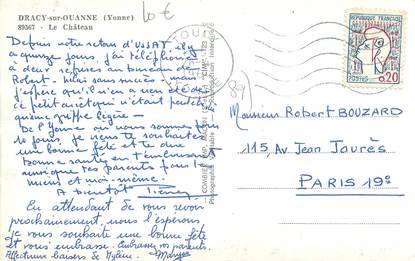 DRACY-sur-OUANNE (Yonne)
89567 - Le Château
10 €
Depuis notre retour d'USSAT, il y
a quinze jours, j'ai téléphoné
à deux reprises au bureau de
Robert. Mais sans succès. Mais
j'espère qu'il n'en a rien été de
ce petit arrêt qui n'était peut-être
qu'une grippe légère -
De l'Yonne où nous sommes pour
10 jours, je vous souhaite
une bonne fête et te dire
Bonne santé en t'embrassant
ainsi que tes parents pour les
miens et moi-même.
A Bientôt Pierre
En attendant de vous revoir
prochainement, nous l'espérons,
je vous souhaite une bonne fête
et vous embrasse. Embrassez vos parents.
Affectueux baisers de Mylène.
COMBIER IMP. MACON
Photographie
REPUBLIQUE FRANÇAISE
POSTES 0,20
(89)
Monsieur Robert BOUZARD
115, Av Jean Jaurès
PARIS 19e